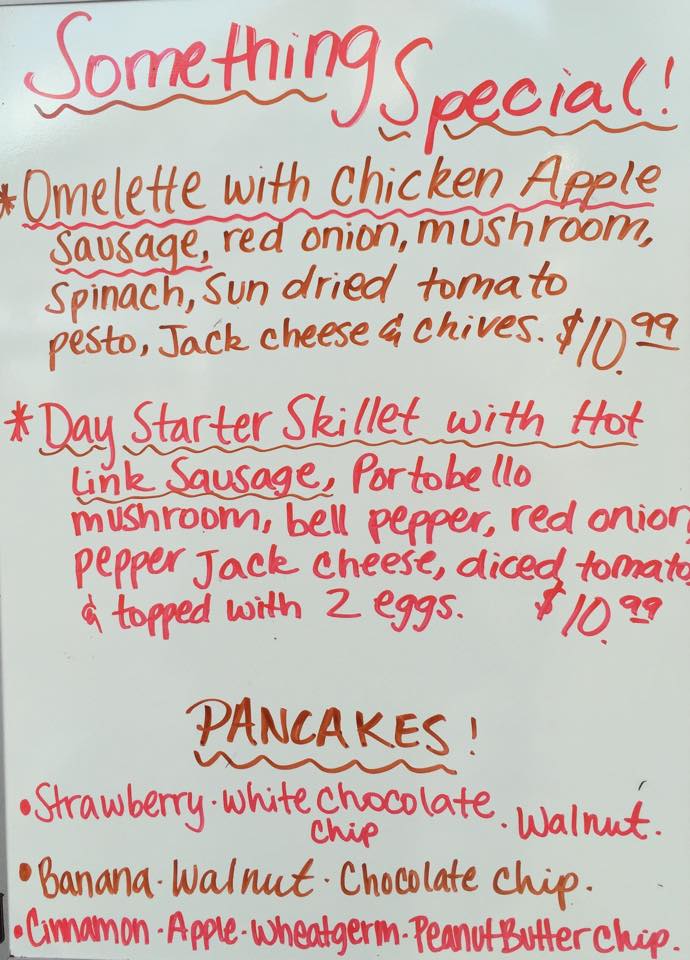 Something Special!
* Omelette with Chicken Apple
Sausage, red onion, mushroom,
Spinach, Sun dried tomato
pesto, Jack cheese & chives. $10.99
* Day Starter Skillet with Hot
Link Sausage, Portobello
mushroom, bell pepper, red onion,
pepper Jack cheese, diced tomato
& topped with 2 eggs. $10.99
PANCAKES!
• Strawberry · White chocolate chip · Walnut.
• Banana · Walnut · Chocolate chip.
• Cinnamon · Apple · Wheatgerm · Peanut Butter chip.